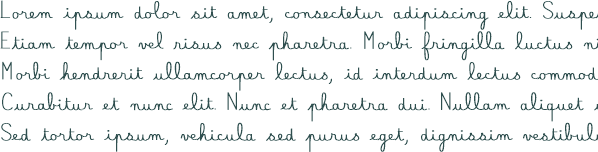 Lorem ipsum dolor sit amet, consectetur adipiscing elit. Suspe
Etiam tempor vel risus nec pharetra. Morbi fringilla luctus ni
Morbi hendrerit ullamcorper lectus, id interdum lectus commod
Curabitur et nunc elit. Nunc et pharetra dui. Nullam aliquet
Sed tortor ipsum, vehicula sed purus eget, dignissim vestibul